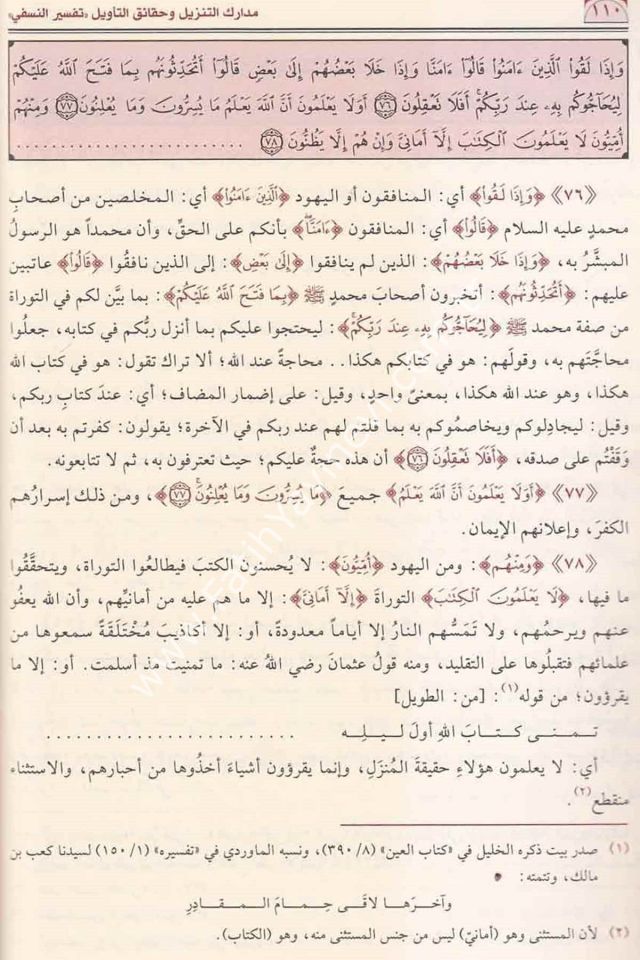 مدارك التنزيل وحقائق التأويل «تفسير النسفي»
١١٠
وَإِذَا لَقُوا۟ ٱلَّذِينَ ءَامَنُوا۟ قَالُوٓا۟ ءَامَنَّا وَإِذَا خَلَا بَعْضُهُمْ إِلَىٰ بَعْضٍ قَالُوٓا۟ أَتُحَدِّثُونَهُم بِمَا فَتَحَ ٱللَّهُ عَلَيْكُمْ
لِيُحَآجُّوكُم بِهِۦ عِندَ رَبِّكُمْ أَفَلَا تَعْقِلُونَ ٧٦ أَوَلَا يَعْلَمُونَ أَنَّ ٱللَّهَ يَعْلَمُ مَا يُسِرُّونَ وَمَا يُعْلِنُونَ ٧٧ وَمِنْهُمْ
أُمِّيُّونَ لَا يَعْلَمُونَ ٱلْكِتَٰبَ إِلَّآ أَمَانِىَّ وَإِنْ هُمْ إِلَّا يَظُنُّونَ ٧٨ ..........................
﴿٧٦﴾ ﴿وَإِذَا لَقُوا﴾ أي: المنافقون أو اليهود ﴿الَّذِينَ ءَامَنُوا﴾ أي: المخلصين من أصحاب
محمدٍ عليه السلام ﴿قَالُوا﴾ أي: المنافقون ﴿ءَامَنَّا﴾ بأنكم على الحقِّ، وأن محمداً هو الرسولُ
المبشَّرُ به، ﴿وَإِذَا خَلَا بَعْضُهُمْ﴾: الذين لم ينافقوا ﴿إِلَىٰ بَعْضٍ﴾: إلى الذين نافقُوا ﴿قَالُوا﴾ عاتبين
عليهم: ﴿أَتُحَدِّثُونَهُم﴾: أتخبرون أصحابَ محمدٍ ﷺ ﴿بِمَا فَتَحَ اللَّهُ عَلَيْكُمْ﴾: بما بيَّن لكم في التوراة
من صفة محمد ﷺ ﴿لِيُحَاجُّوكُم بِهِ عِندَ رَبِّكُمْ﴾: ليحتجوا عليكم بما أنزل ربُّكم في كتابه، جعلُوا
محاجَّتَهم به، وقولَهم: هو في كتابكم هكذا.. محاجةً عند الله؛ ألا تراك تقول: هو في كتاب الله
هكذا، وهو عند الله هكذا، بمعنىً واحدٍ، وقيل: على إضمار المضاف؛ أي: عندَ كتابِ ربكم،
وقيل: ليجادِلوكم ويخاصمُوكم به بما قلتم لهم عند ربكم في الآخرة؛ يقولون: كفرتم به بعد أن
وَقَفْتُم على صدقه، ﴿أَفَلَا تَعْقِلُونَ ٧٦﴾ أن هذه حجةٌ عليكم؛ حيث تعترفون به، ثم لا تتابعونه.
﴿٧٧﴾ ﴿أَوَلَا يَعْلَمُونَ أَنَّ اللَّهَ يَعْلَمُ﴾ جميعَ ﴿مَا يُسِرُّونَ وَمَا يُعْلِنُونَ ٧٧﴾، ومن ذلك إسرارُهم
الكفرَ، وإعلانهم الإيمان.
﴿٧٨﴾ ﴿وَمِنْهُمْ﴾: ومن اليهود ﴿أُمِّيُّونَ﴾: لا يُحسنون الكتبَ فيطالعُوا التوراة، ويتحقَّقُوا
ما فيها، ﴿لَا يَعْلَمُونَ الْكِتَابَ﴾ التوراةَ ﴿إِلَّا أَمَانِيَّ﴾: إلا ما هم عليه من أمانيِّهم، وأن الله يعفُو
عنهم ويرحمُهم، ولا تَمَسُّهم النارُ إلا أياماً معدودةً، أو: إلا أكاذيبَ مُخْتَلَقَةً سمعوها من
علمائهم فتقبلُوها على التقليد، ومنه قولُ عثمانَ رضي اللهُ عنه: ما تمنيت مذ أسلمت. أو: إلا ما
يقرؤون؛ من قوله(١): [من: الطويل]
تـمـنـى كـتـابَ اللهِ أولَ لـيـلِـه ..........................
أي: لا يعلمون هؤلاءِ حقيقةَ المُنزَلِ، وإنما يقرؤون أشياءَ أخذُوها من أحبارهم، والاستثناء
منقطع(٢).
(١) صدر بيت ذكره الخليل في «كتاب العين» (٨/ ٣٩٠)، ونسبه الماوردي في «تفسيره» (١/ ١٥٠) لسيدنا كعب بن
مالك، وتتمته:
وآخـرَهـا لاقَـى حِـمـامَ الـمـقـادِرِ
(٢) لأن المستثنى وهو (أمانيّ) ليس من جنس المستثنى منه، وهو (الكتاب).